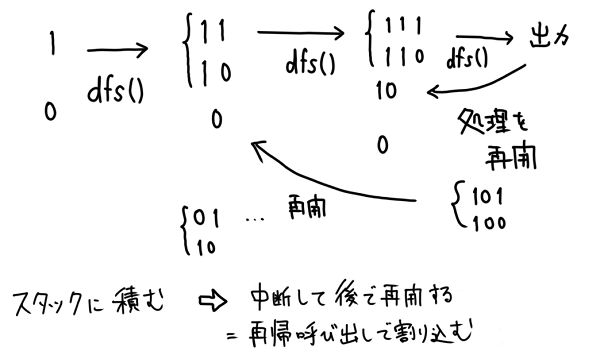 1
0
dfs()
11
10
0
dfs()
111
110
10
0
dfs()
出力
処理を
再開
101
100
再開
01
10
...
スタックに積む ⇨ 中断して後で再開する
= 再帰呼び出しで割り込む